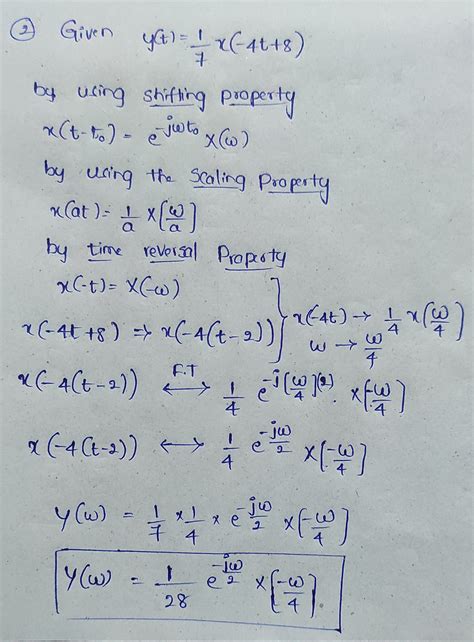 ② Given y(t) = 1/7 x(-4t+8)
by using shifting property
x(t-t₀) = e^-jωt₀ X(ω)
by using the Scaling Property
x(at) = 1/a X[ω/a]
by time reversal Property
x(-t) = X(-ω)
x(-4t+8) ⇒ x(-4(t-2)) } x(-4t) → 1/4 x(ω/4)
ω → ω/4
x(-4(t-2)) F.T ⟷ 1/4 e^-j[ω/4](2) . X[-ω/4]
x(-4(t-2)) ⟷ 1/4 e^-jω/2 X[-ω/4]
Y(ω) = 1/7 × 1/4 × e^-jω/2 X[-ω/4]
Y(ω) = 1/28 e^-jω/2 X[-ω/4].